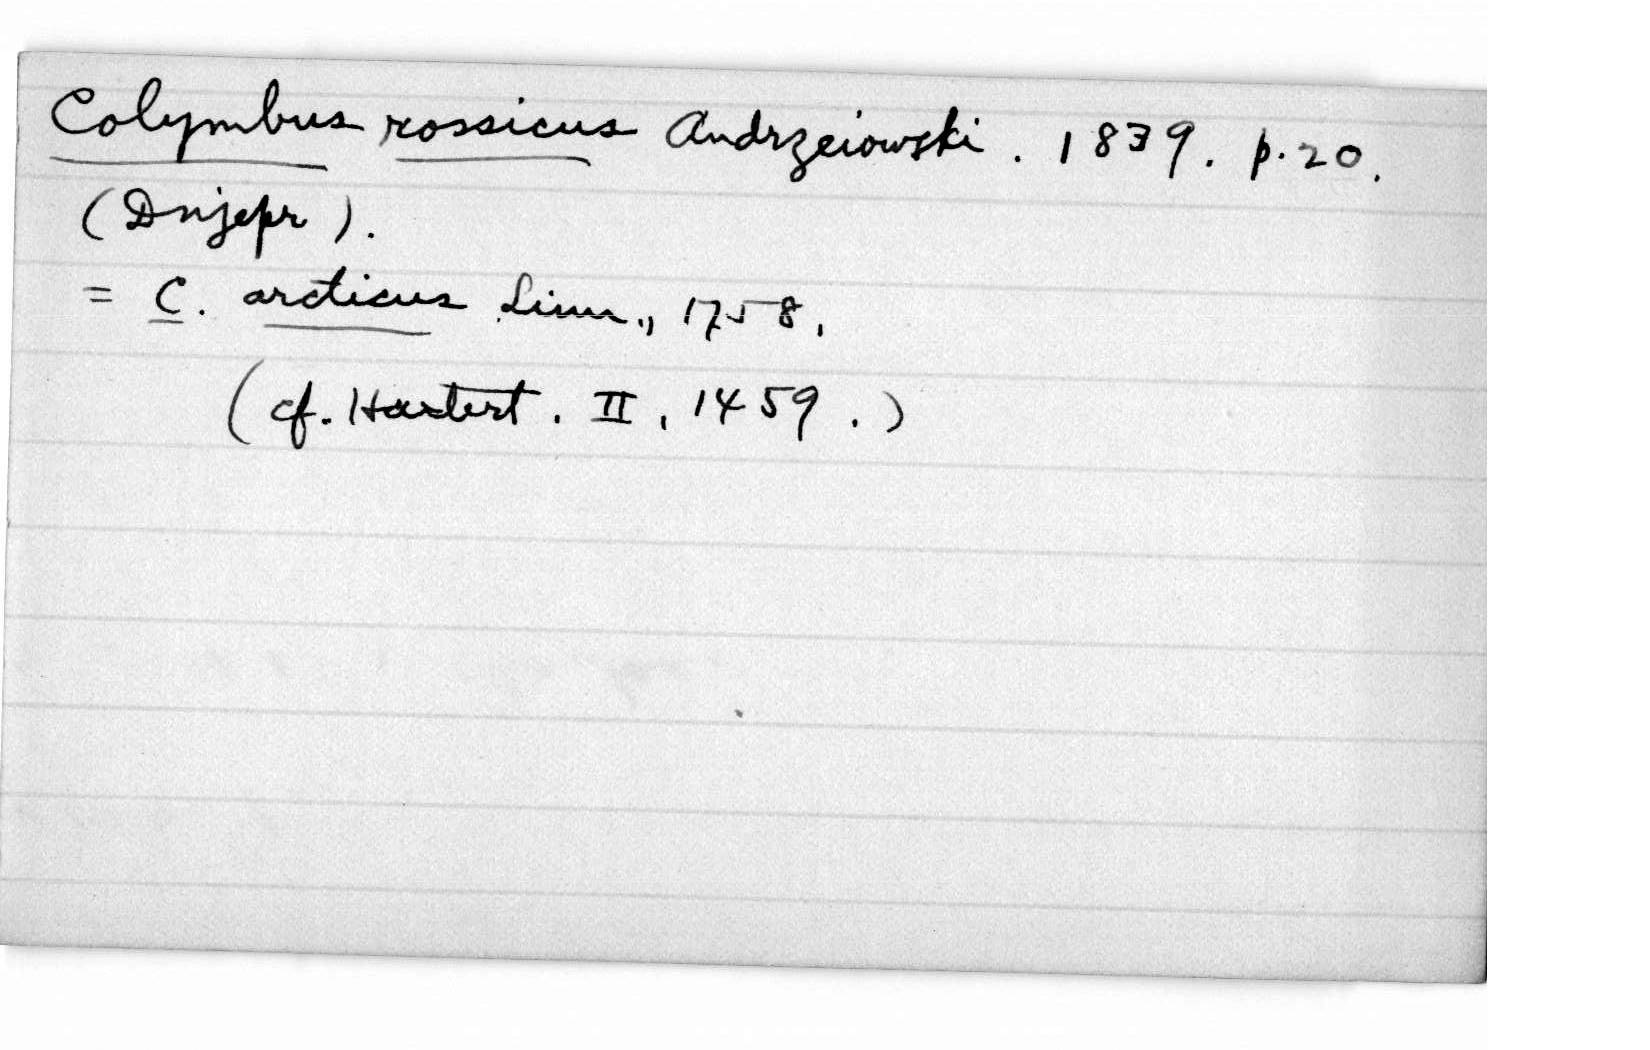 Colymbus rossicus Andrzeiowski. 1839. p. 20.
(Dnjepr).
= C. arcticus Linn., 1758,
(cf. Hartert. II, 1459.)